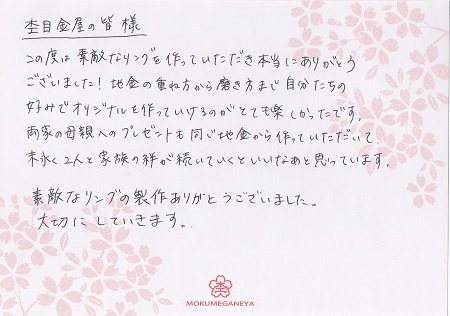 杢目金屋の皆様
この度は素敵なリングを作っていただき本当にありがとう
ございました！地金の重ね方から磨き方まで自分たちの
好みでオリジナルを作っていけるのがとても楽しかったです。
両家の母親へのプレゼントも同じ地金から作っていただいて
末永く2人と家族の絆が続いていくといいなあと思っています。
素敵なリングの製作ありがとうございました。
大切にしていきます。
MOKUMEGANEYA